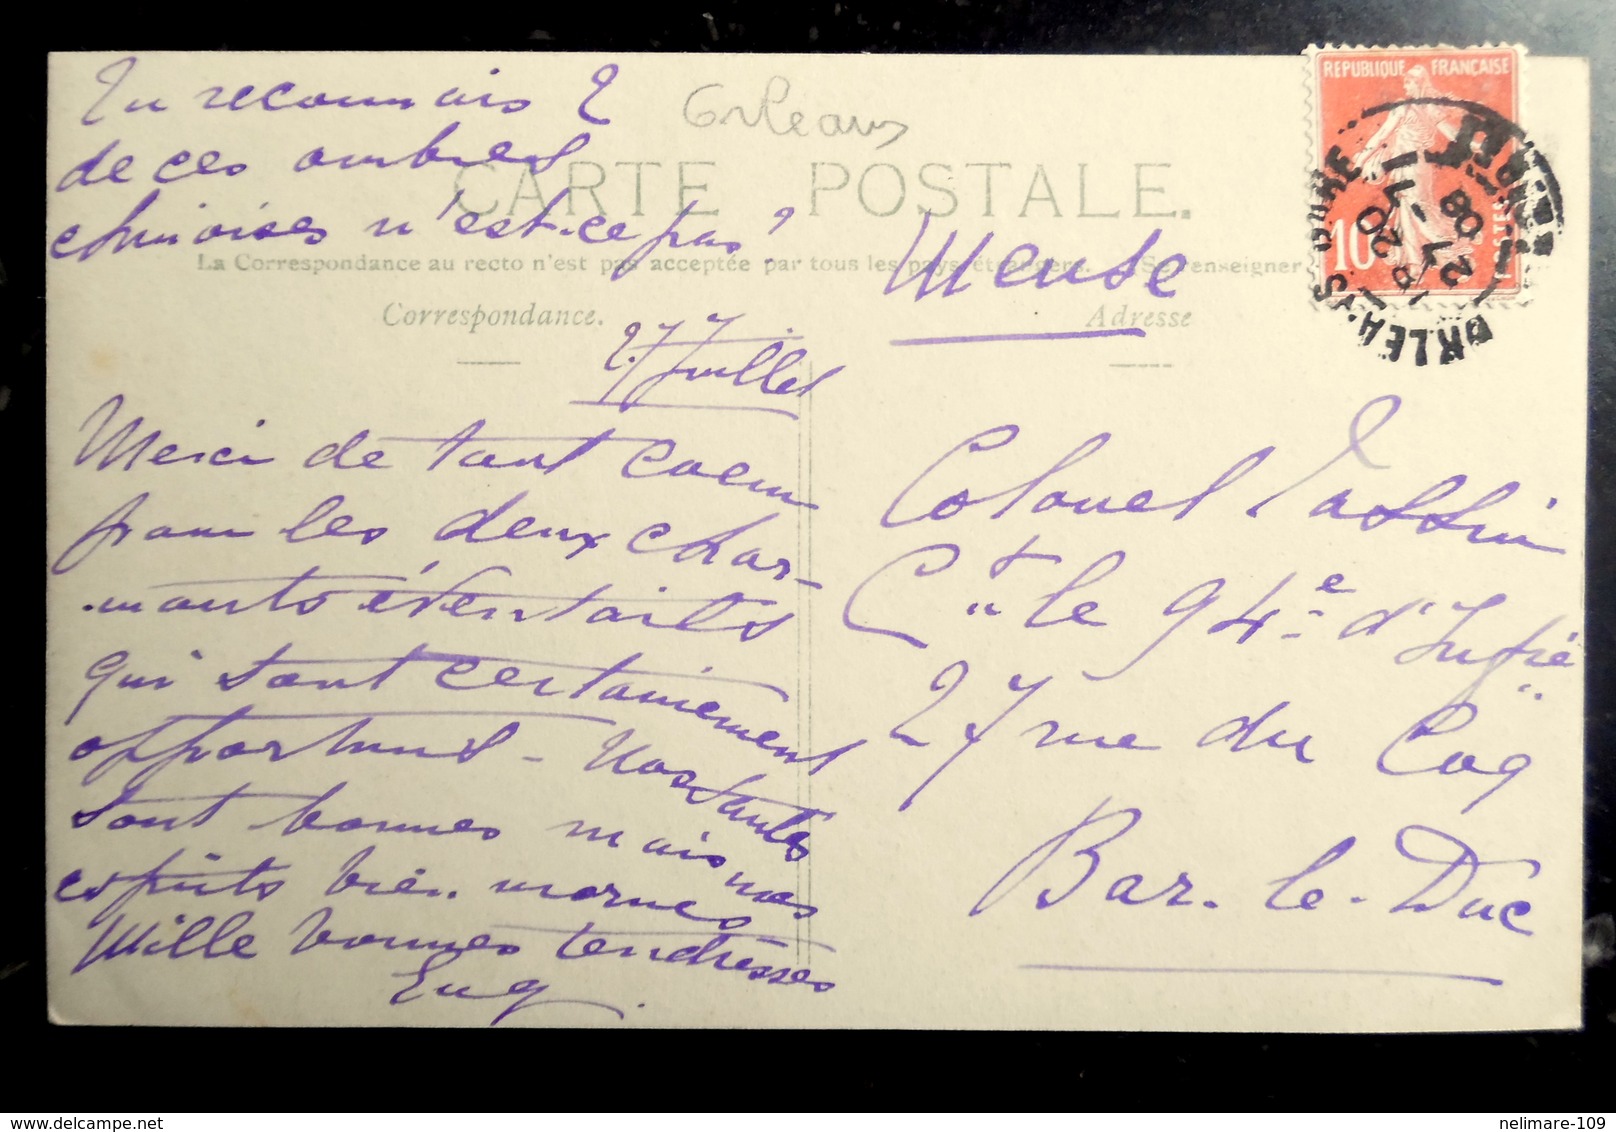 Tu reconnais 2
de ces ombres
chinoises n'est-ce pas?
Orleans
CARTE POSTALE.
La Correspondance au recto n'est pas acceptée par tous les pays étrangers. Se renseigner
Meuse
Correspondance.
Adresse
27 Juillet
Merci de tout coeur
pour les deux char-
mants éventails
qui sont certainement
opportuns - Nos santés
sont bonnes mais nos
esprits bien mornes
Mille bonnes tendresses
Eug.
Colonel Tassin
Ct le 94e d'Infie
27 rue du Coq
Bar-le-Duc
REPUBLIQUE FRANÇAISE
10
POSTES
nelimare-109